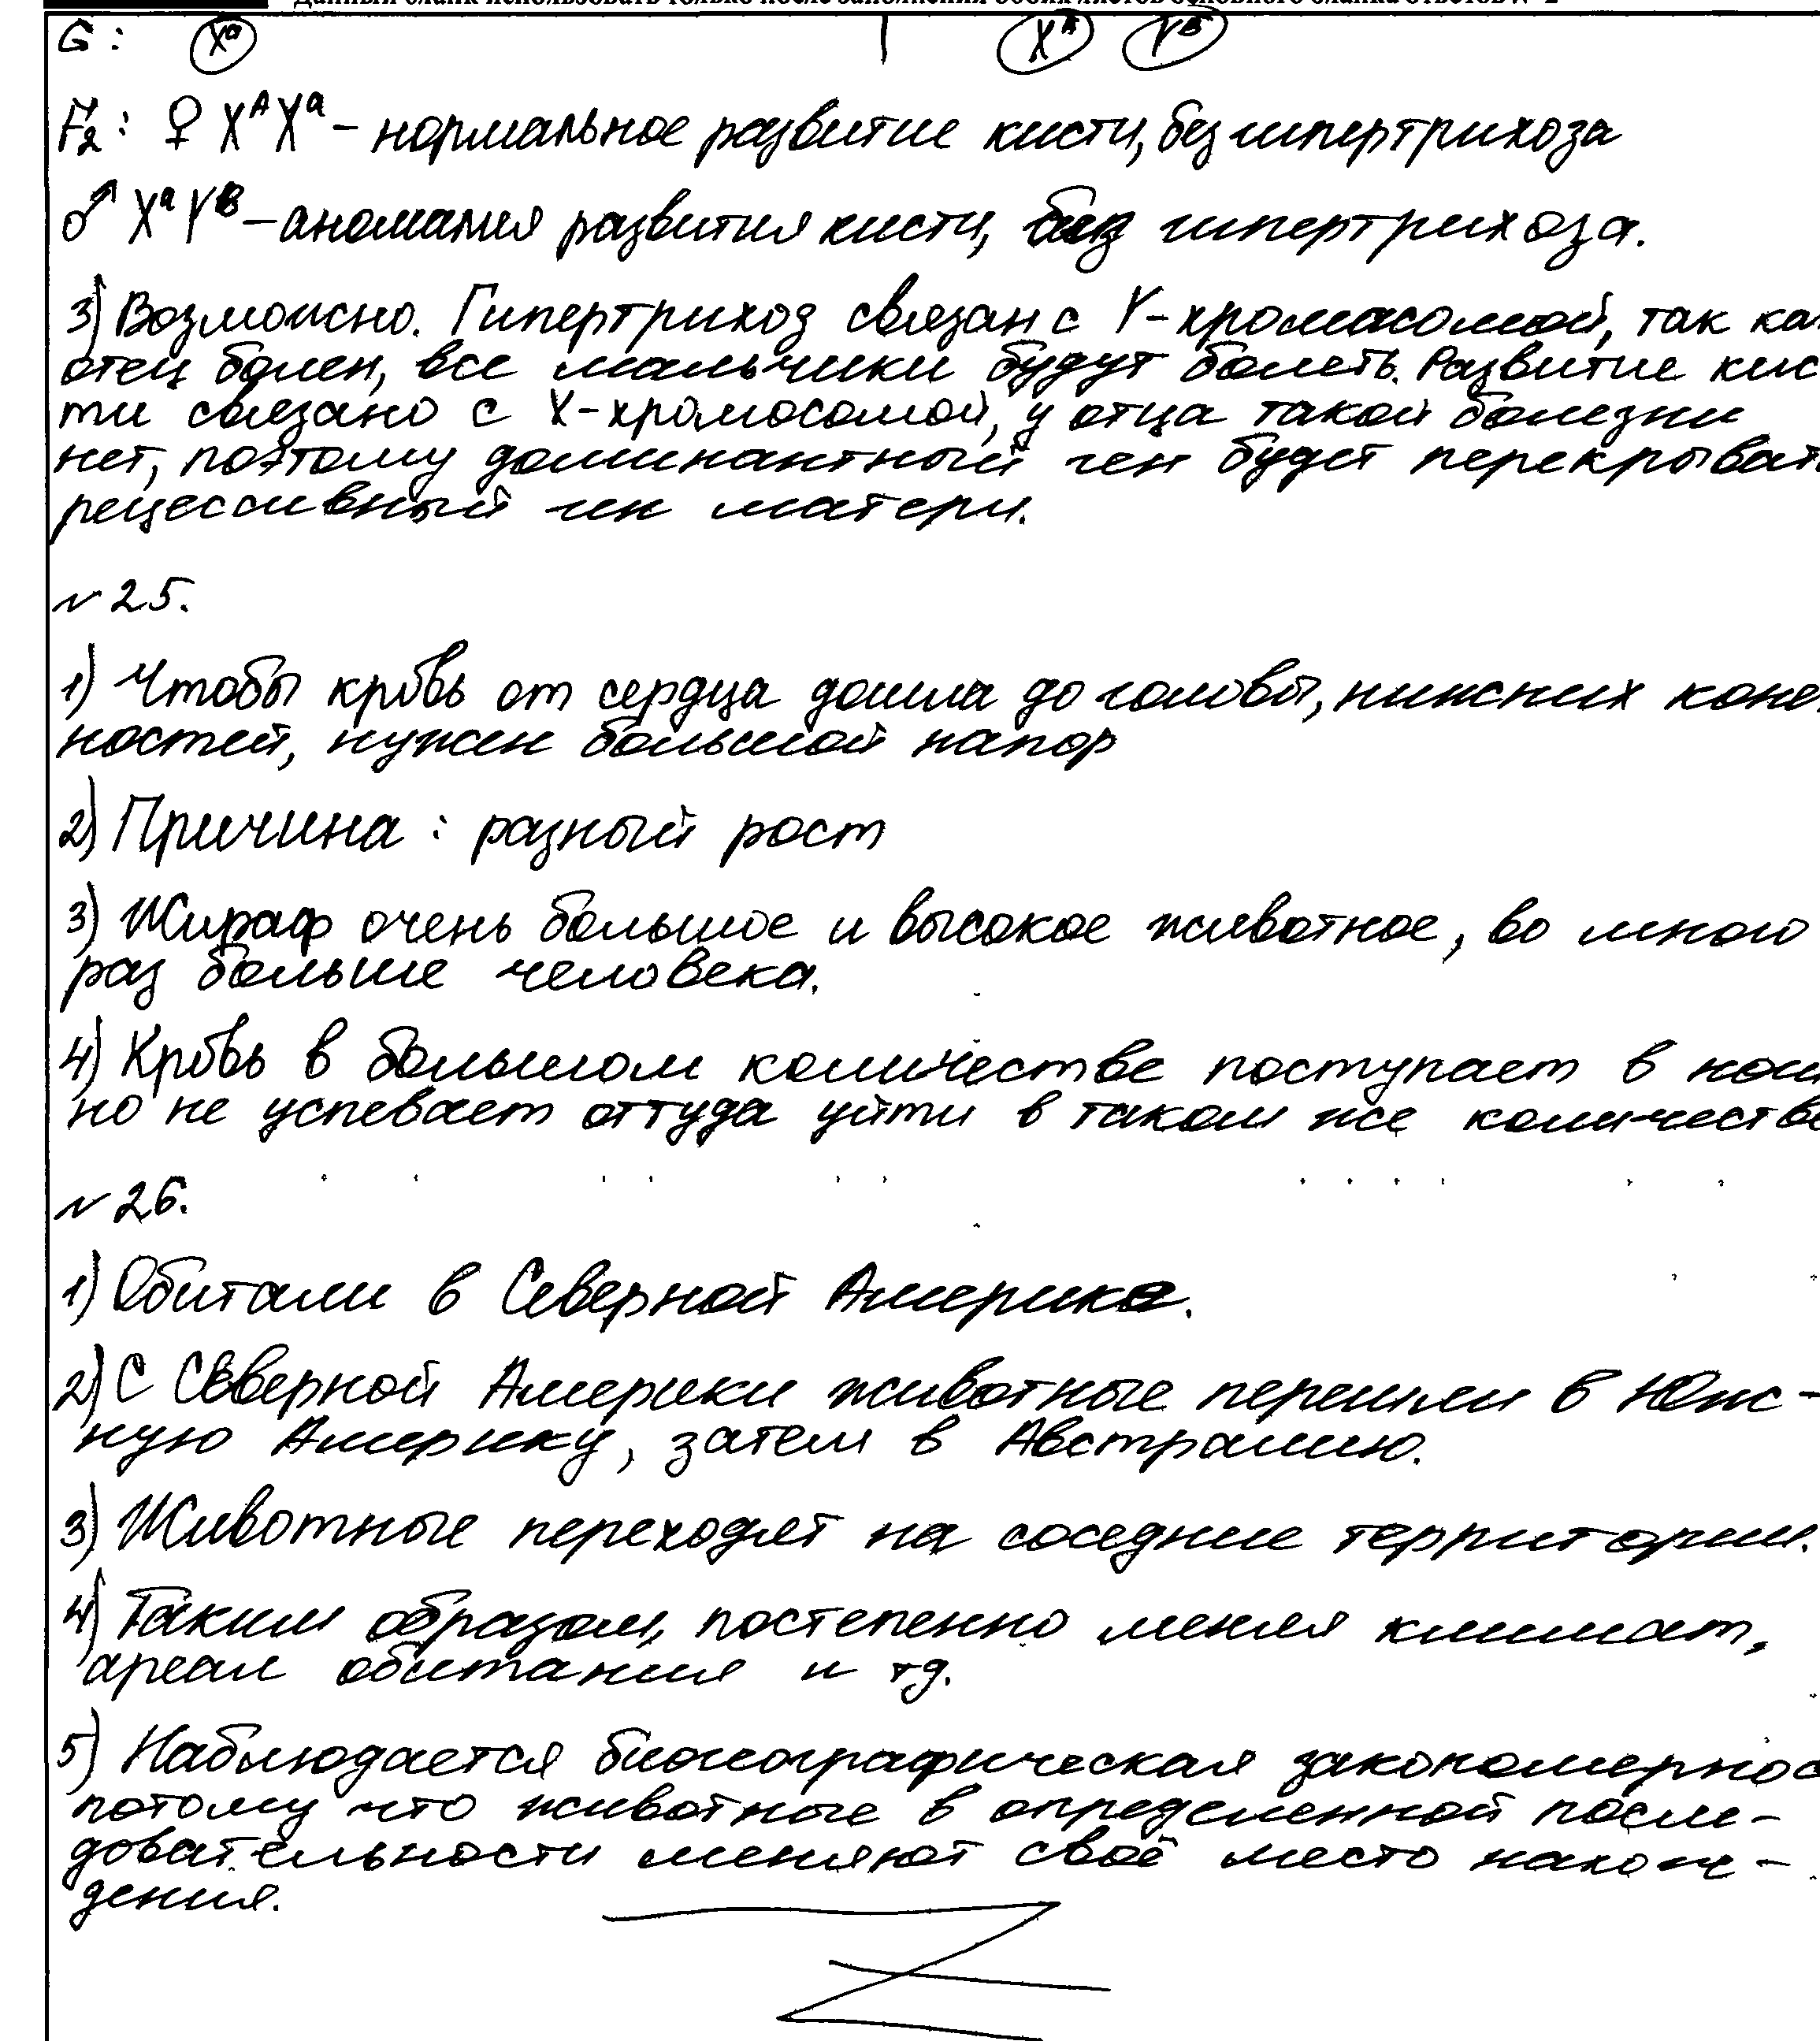 Данный бланк использовать только после заполнения обоих листов основного бланка ответов № 2
G: Xᵃ | Xᴬ Yᴮ
F₂: ♀ XᴬXᵃ – нормальное развитие кисти, без гипертрихоза
♂ XᵃYᴮ – аномалия развития кисти, гипертрихоза.
3) Возможно. Гипертрихоз связан с Y-хромасомой, так ка
отец болен, все мальчики будут болеть. Развитие кис
ти связано с X-хромосомой, у отца такой болезни
нет, поэтому доминантный ген будет перекрывать
рецессивный ген матери.
№ 25.
1) Чтобы кровь от сердца дошла до головы, нижних конеч
ностей, нужен большой напор
2) Причина: разный рост
3) Жираф очень большое и высокое животное, во много
раз больше человека.
4) Кровь в большом количестве поступает в ноги
но не успевает оттуда уйти в таком же количестве
№ 26.
1) Обитали в Северной Америке.
2) С Северной Америки животные перешли в Юж-
ную Америку, затем в Австралию.
3) Животные переходят на соседние территории.
4) Таким образом, постепенно меняя климат,
ареал обитания и тд.
5) Наблюдается биогеографическая закономернос
потому что животные в определенной после-
довательности меняют своё место нахож-
дения.